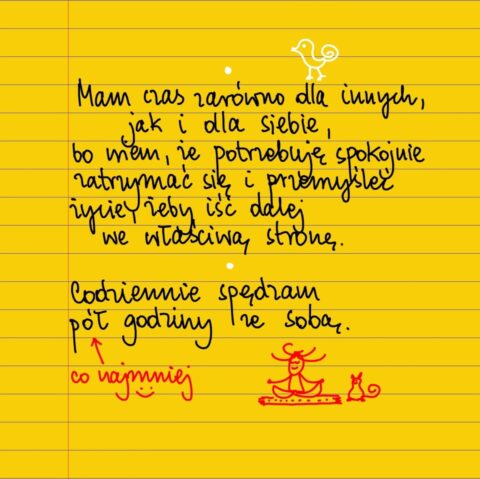 Mam czas zarówno dla innych,
jak i dla siebie,
bo wiem, że potrzebuję spokojnie
zatrzymać się i przemyśleć
życie, żeby iść dalej
we właściwą stronę.
Codziennie spędzam
pół godziny ze sobą.
co najmniej